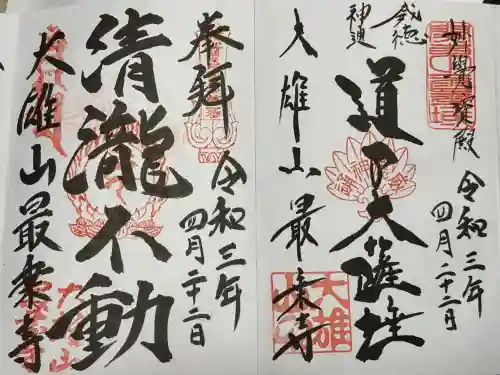 奉拝
令和三年
四月二十二日
清瀧不動
大雄山最乗寺
妙覺寳殿
令和三年
四月二十二日
威徳
神通
道了大薩埵
大雄山最乗寺